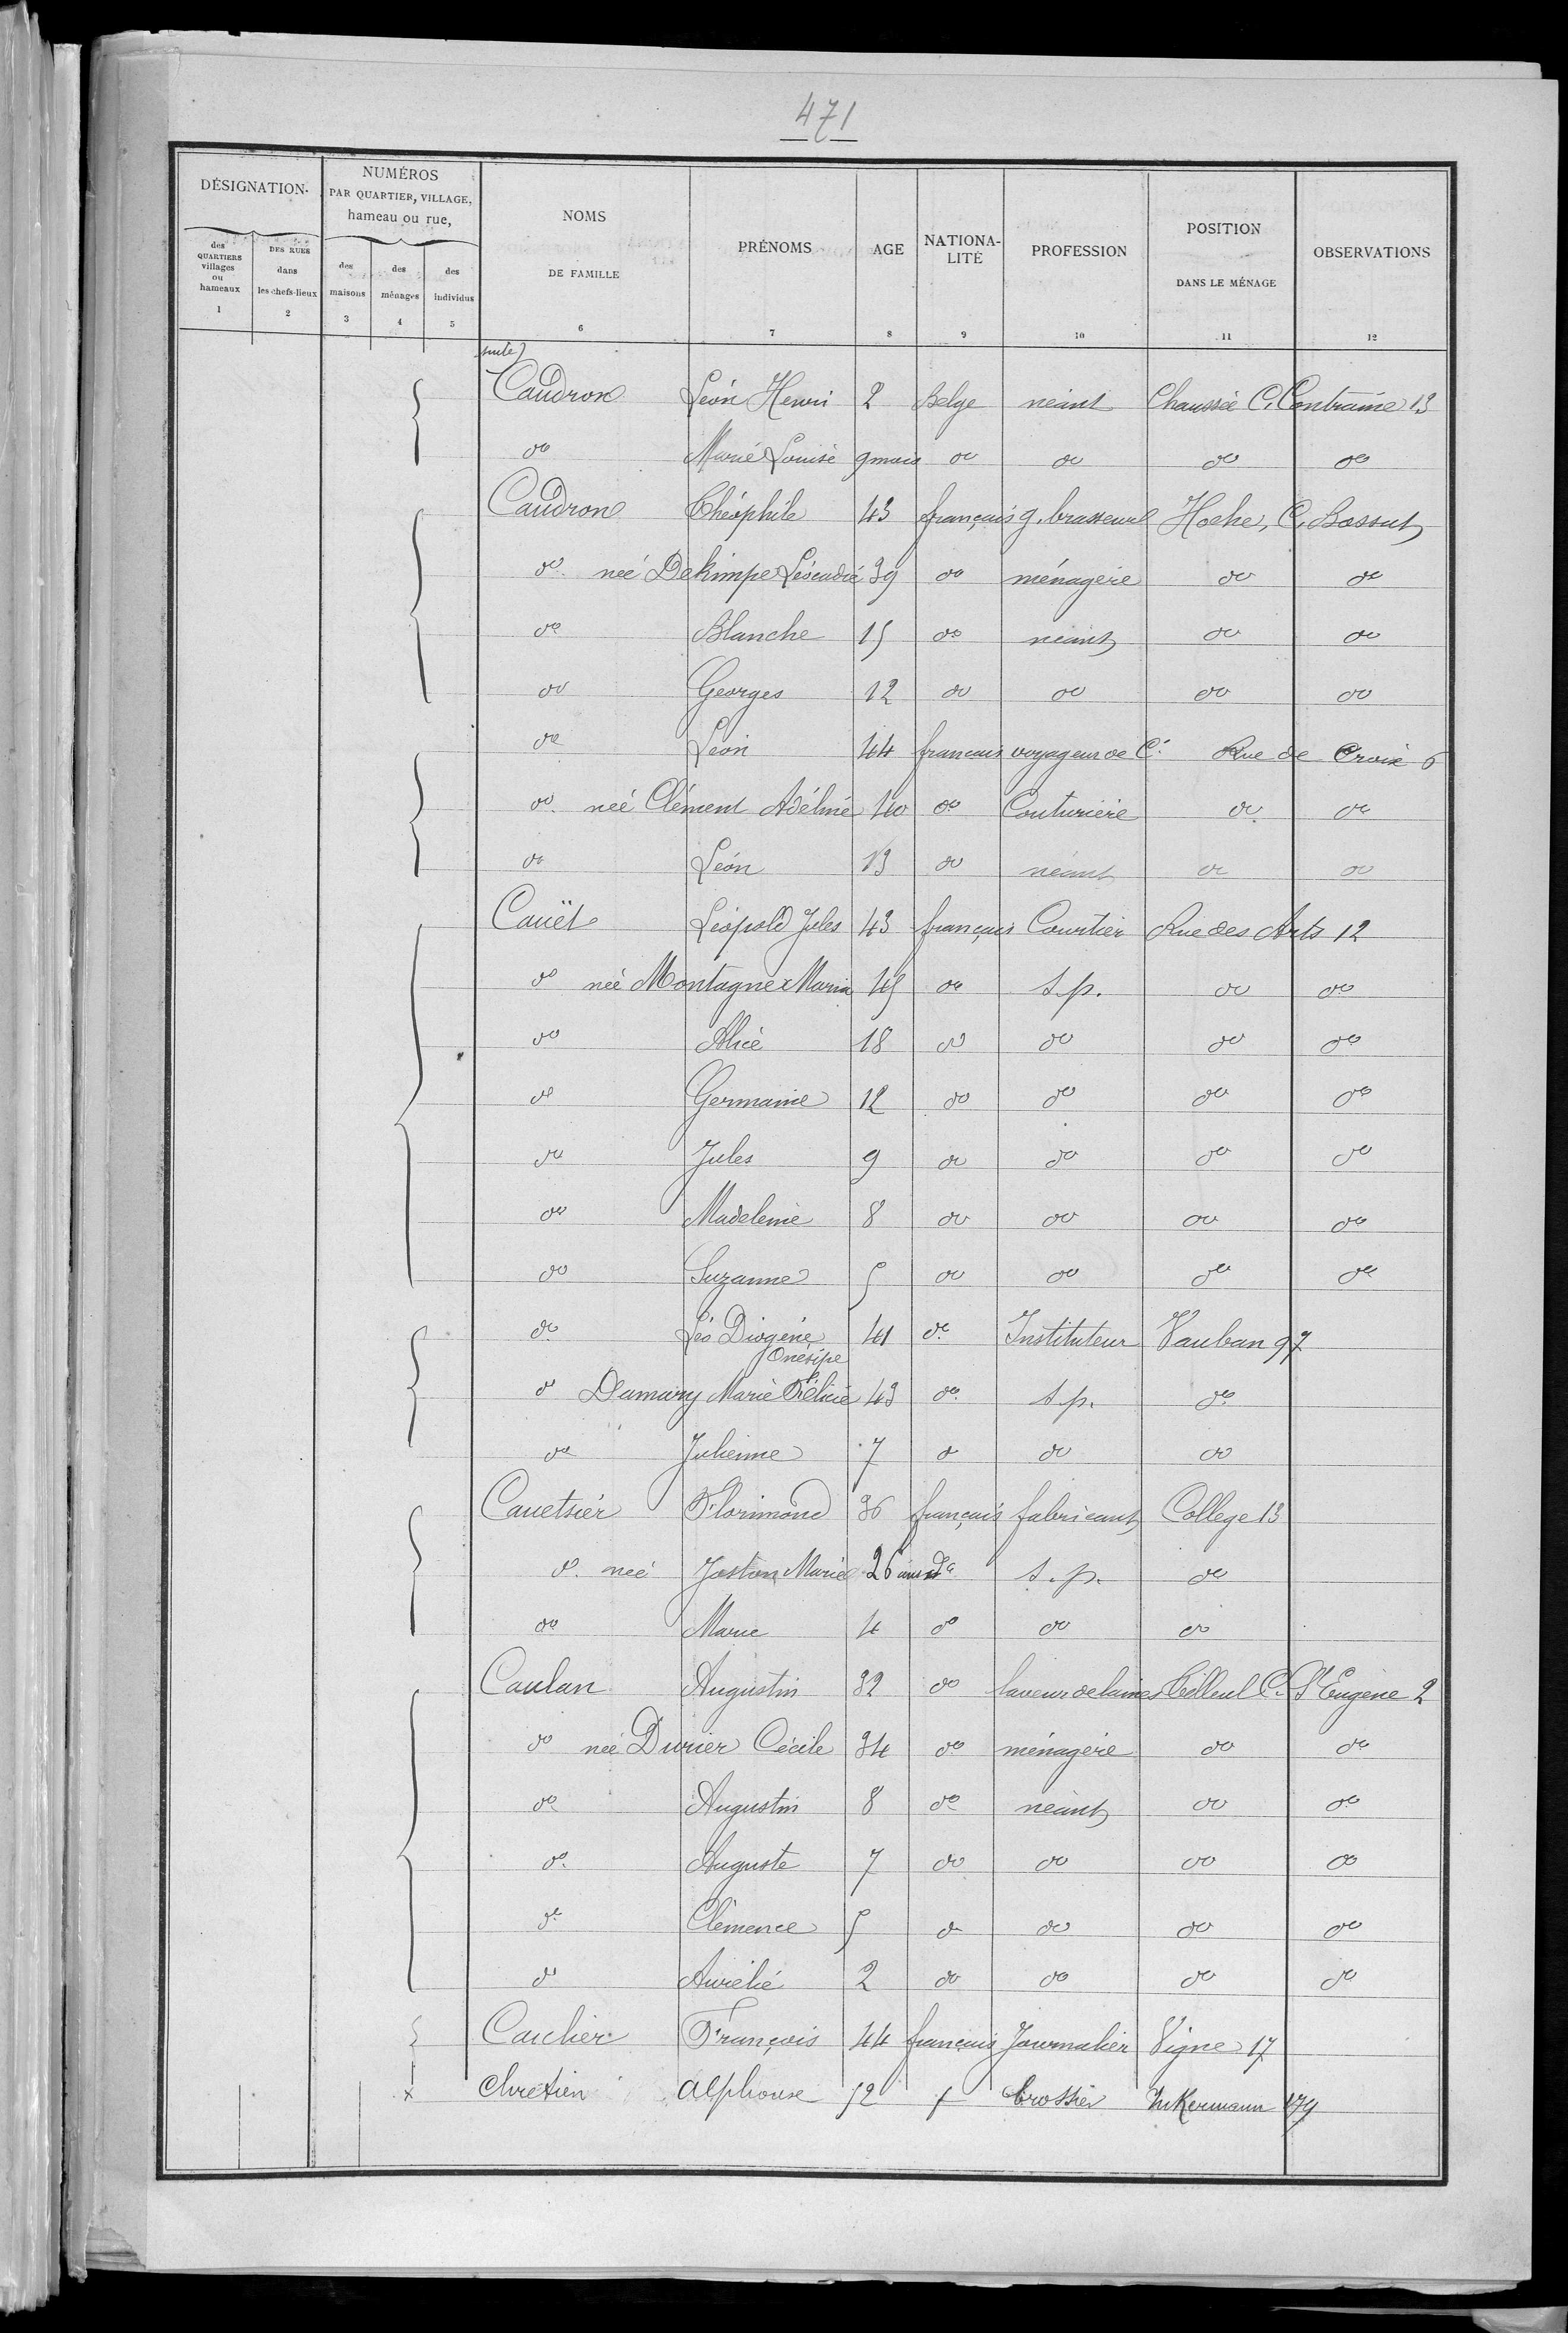 471
DÉSIGNATION
NUMÉROS
PAR QUARTIER, VILLAGE,
hameau ou rue,
des QUARTIERS villages ou hameaux
DES RUES dans les chefs-lieux
des maisons
des ménages
des individus
NOMS DE FAMILLE
PRÉNOMS
AGE
NATIONA-LITÉ
PROFESSION
POSITION DANS LE MÉNAGE
OBSERVATIONS
1 2 3 4 5 6 7 8 9 10 11 12
suite
Caudron Léon Henri 2 Belge néant Chaussée C. Contraine 13
do Marie Louise 9 mois do do do do
Caudron Théophile 43 français g. brasseur Hoche, C. Bossut
do née Dekimpe Léocadie 39 do ménagère do do
do Blanche 15 do néant do do
do Georges 12 do do do do
do Léon 44 francais voyageur de Cé Rue de Croix 6
do née Clément Adéline 40 do Couturière do do
do Léon 13 do néant do do
Cauët Léopold Jules 43 français Courtier Rue des Arts 12
do née Montagne Maria 45 do s.p. do do
do Alice 18 do do do do
do Germaine 12 do do do do
do Jules 9 do do do do
do Madeleine 8 do do do do
do Suzanne 5 do do do do
do Léo Diogène Onésipe 41 do Instituteur Vauban 97
do Damury Marie Félicie 43 do s.p. do
do Julienne 7 do do do
Cauetsier Florimond 36 français fabricant College 13
do née Joston Marie 26 ans do s.p. do
do Marie 4 do do do
Caulan Augustin 32 do laveur de laines Tilleul C. St Eugène 2
do née Durier Cécile 34 do ménagère do do
do Augustin 8 do néant do do
do Auguste 7 do do do do
do Clémence 5 do do do do
do Aurélie 2 do do do do
Caulier François 44 français Journalier Vigne 17
x Chretien Alphonse 52 f Brossier Inkermann 179